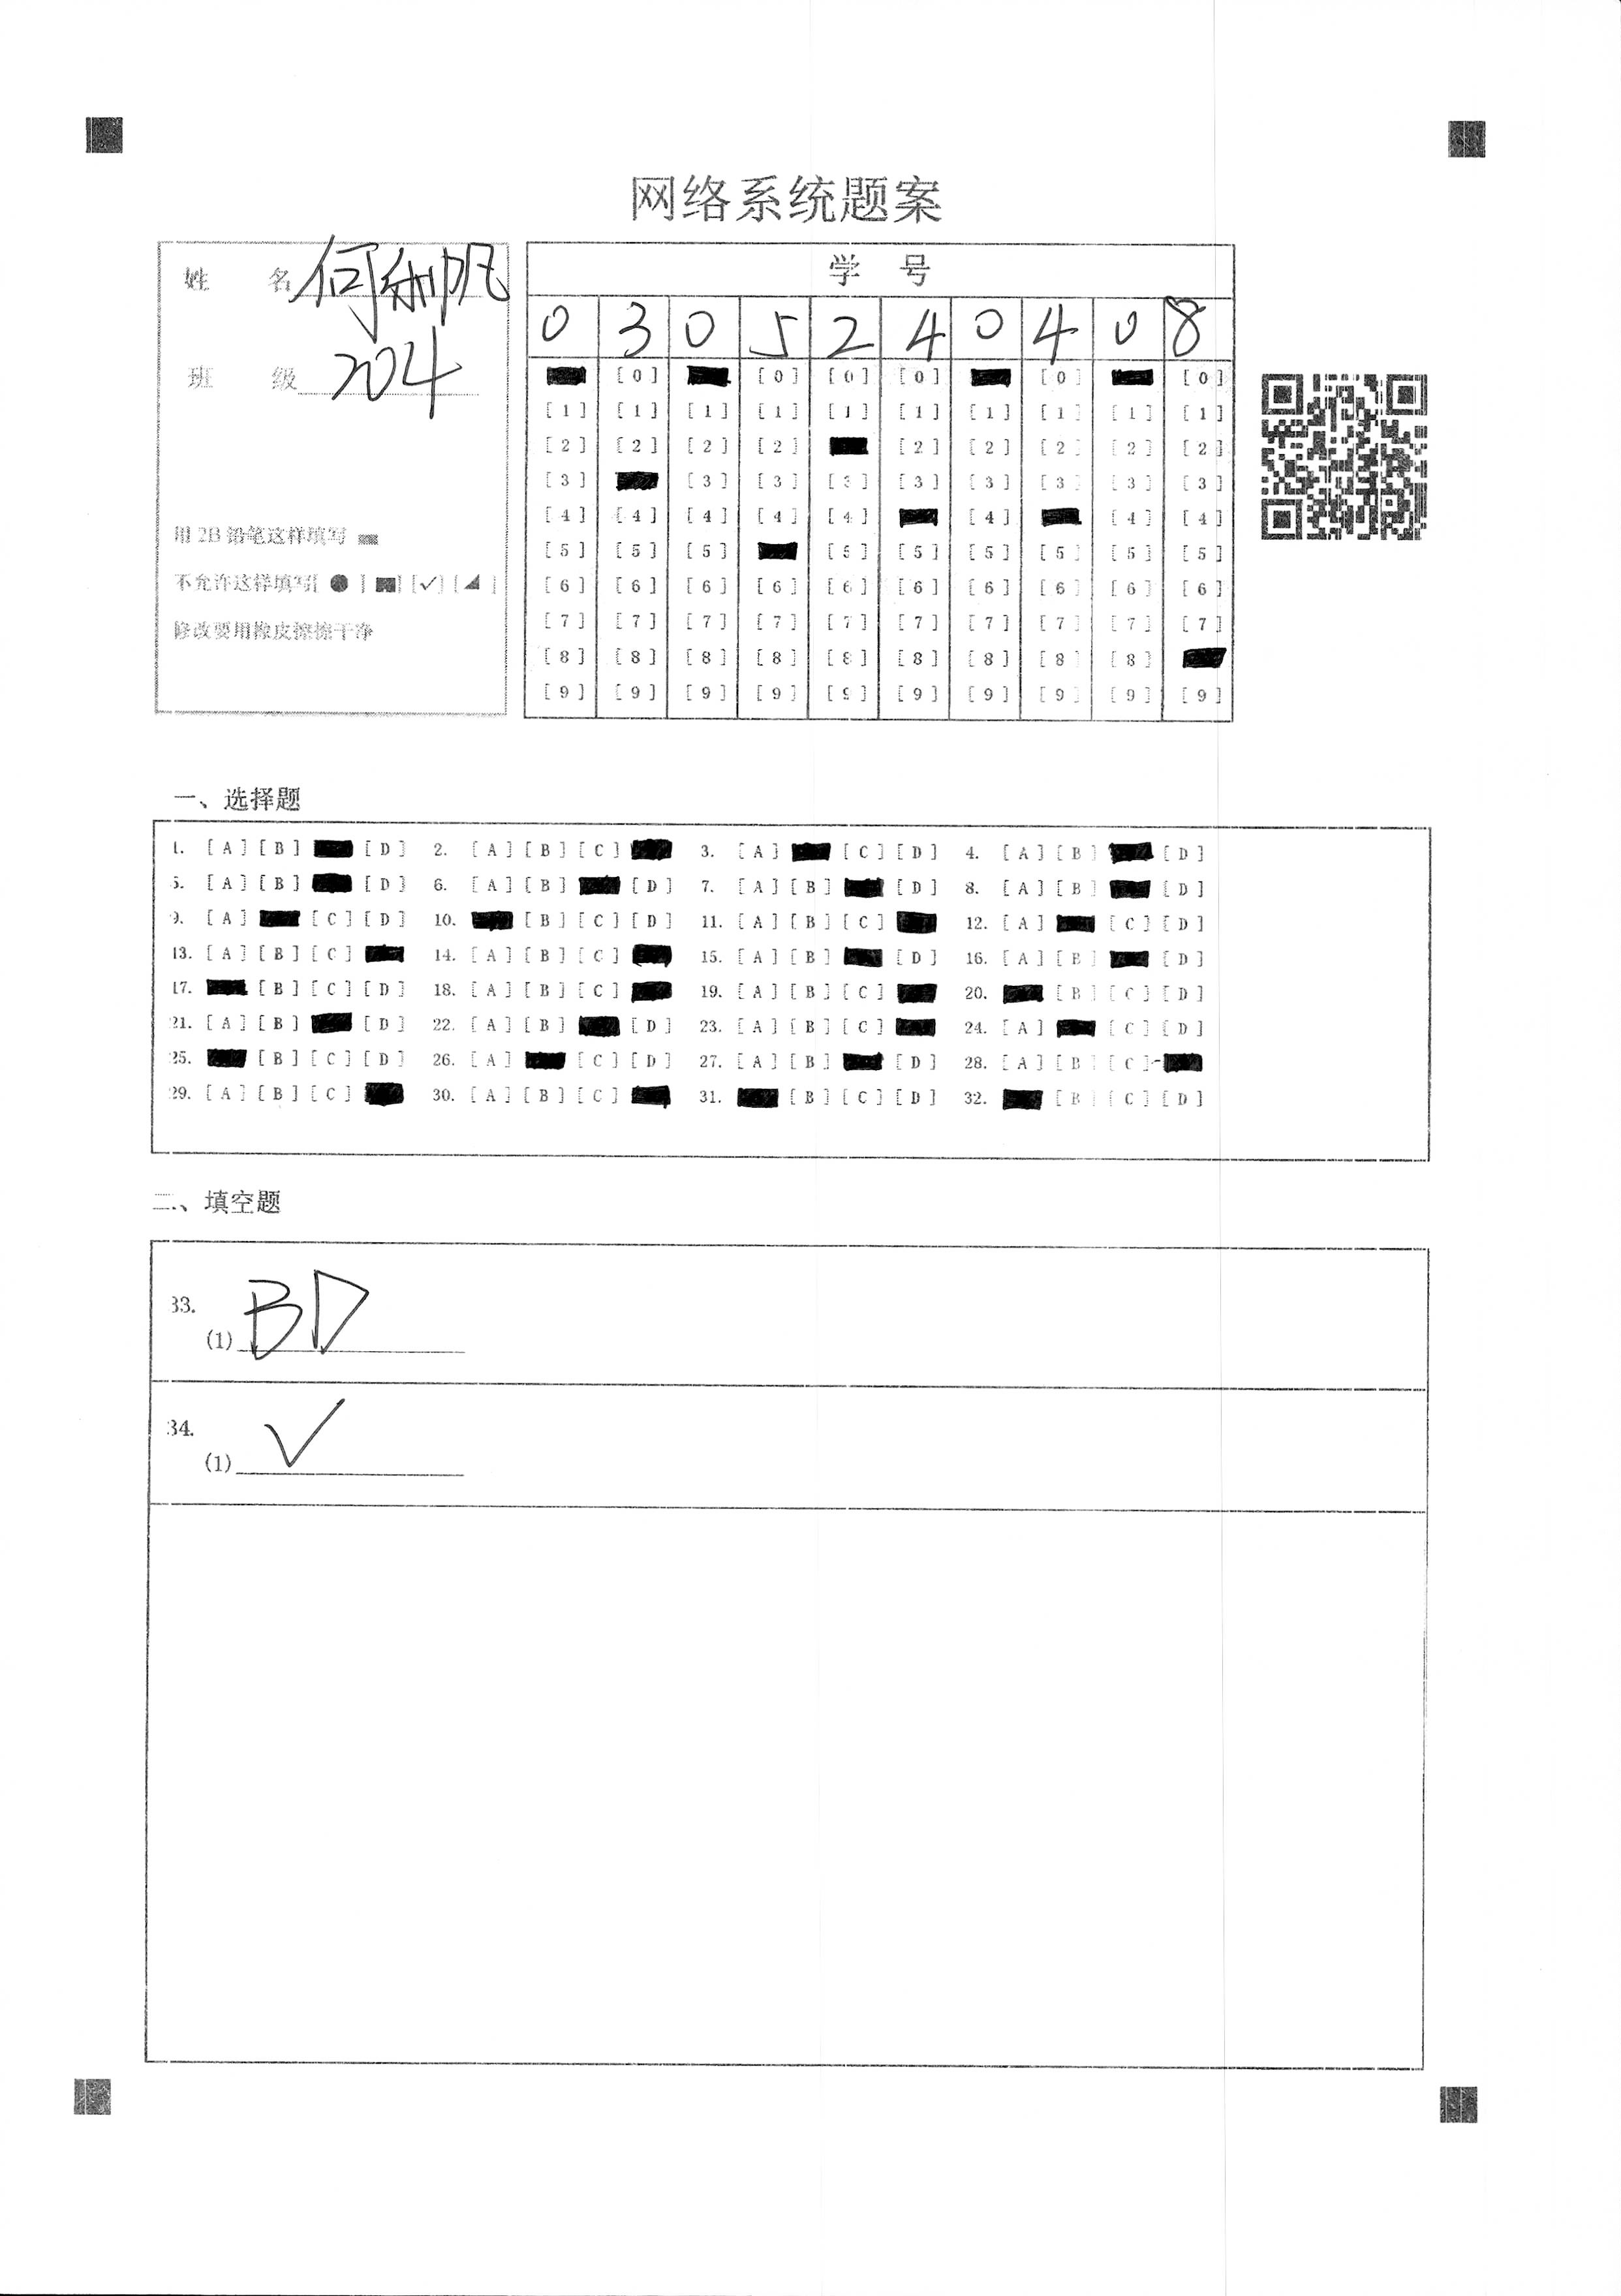 网络系统题案
姓 名 何 帆
班 级 204
用 2B 铅笔这样填写
不允许这样填写[ ● ] [■] [✓] [◢ ]
修改要用橡皮擦擦干净
学 号
0 3 0 5 2 4 0 4 0 8
[0] [0] [0] [0] [0] [0]
[1] [1] [1] [1] [1] [1] [1] [1] [1] [1]
[2] [2] [2] [2] [2] [2] [2] [2] [2]
[3] [3] [3] [3] [3] [3] [3] [3] [3]
[4] [4] [4] [4] [4] [4] [4] [4]
[5] [5] [5] [5] [5] [5] [5] [5] [5]
[6] [6] [6] [6] [6] [6] [6] [6] [6] [6]
[7] [7] [7] [7] [7] [7] [7] [7] [7] [7]
[8] [8] [8] [8] [8] [8] [8] [8] [8]
[9] [9] [9] [9] [9] [9] [9] [9] [9] [9]
一、选择题
1. [A] [B] [D] 2. [A] [B] [C] 3. [A] [C] [D] 4. [A] [B] [D]
5. [A] [B] [D] 6. [A] [B] [D] 7. [A] [B] [D] 8. [A] [B] [D]
9. [A] [C] [D] 10. [B] [C] [D] 11. [A] [B] [C] 12. [A] [C] [D]
13. [A] [B] [C] 14. [A] [B] [C] 15. [A] [B] [D] 16. [A] [B] [D]
17. [B] [C] [D] 18. [A] [B] [C] 19. [A] [B] [C] 20. [B] [C] [D]
21. [A] [B] [D] 22. [A] [B] [D] 23. [A] [B] [C] 24. [A] [C] [D]
25. [B] [C] [D] 26. [A] [C] [D] 27. [A] [B] [D] 28. [A] [B] [C]
29. [A] [B] [C] 30. [A] [B] [C] 31. [B] [C] [D] 32. [B] [C] [D]
二、填空题
33.
(1) BD
34.
(1) ✓